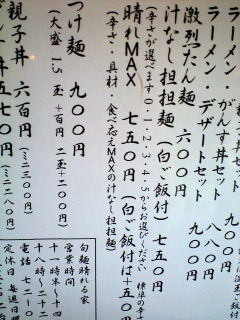 ラーメン・がんす丼セット 九〇〇
ラーメン・デザートセット 八八〇
激烈たん麺 六〇〇 セット 九〇〇
汁なし担担麺(白ご飯付)七五〇
(辛さが選べます0・1・2・3・4・5からお選びください
晴れMAX 七五〇(白ご飯付は+五〇円
(辛さ・具材 食べ応えMAXの汁なし担担麺)
つけ麺 九〇〇
(大盛 1.5玉+百円 2玉+二〇〇円
親子丼 六百円(ミニ三〇〇円
丼 五七〇円(ミニ二八〇円)
旬麺晴れる家
営業時間
十一時半~十四
十八時~二十二
電話 七二一〇
定休日 毎週日曜